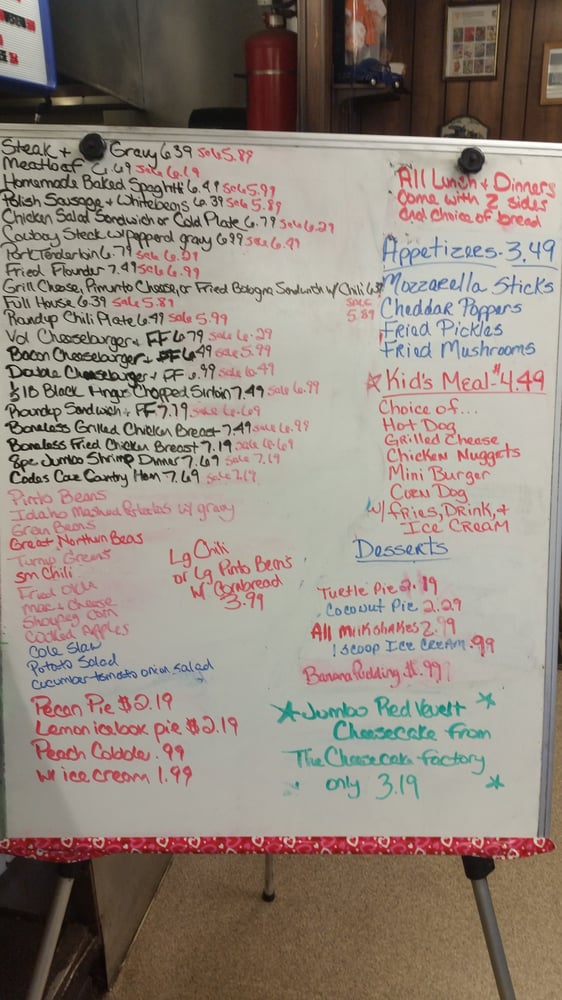 Steak + Gravy 6.39 sale 5.89
Meatloaf 6.69 sale 6.19
Homemade Baked Spaghtti 6.49 sale 5.99
Polish Sausage + Whitebeans 6.39 sale 5.89
Chicken Salad Sandwich or Cold Plate 6.79 sale 6.29
Cowboy Steak w/ pepperd gravy 6.99 sale 6.49
Pork Tenderloin 6.79 sale 6.29
Fried Flounder 7.49 sale 6.99
Grill Cheese, Pimento Cheese, or Fried Bologna Sandwich w/ Chili
sale 5.89
Full House 6.39 sale 5.89
Roundup Chili Plate 6.49 sale 5.99
Vol Cheeseburger + FF 6.79 sale 6.29
Bacon Cheeseburger + FF 6.49 sale 5.99
Double Cheeseburger + FF 6.99 sale 6.49
1/2 lB Black Angus Chopped Sirloin 7.49 sale 6.99
Roundup Sandwich + FF 7.19 sale 6.69
Boneless Grilled Chicken Breast 7.49 sale 6.99
Boneless Fried Chicken Breast 7.19 sale 6.69
8pc Jumbo Shrimp Dinner 7.69 sale 7.19
Country Ham 7.69 sale 7.19
Pinto Beans
Idaho Mashed Potatoes w/ gravy
Green Beans
Great Northern Beas
Turnip Greens
sm Chili
Fried Okra
mac + cheese
Shoepeg corn
Cooked Apples
Cole Slaw
Potato Salad
cucumber tomato onion salad
Lg Chili
or Lg Pinto Beans
w/ Cornbread
3.99
Pecan Pie $2.19
Lemon icebox pie $2.19
Peach Cobbler .99
w/ ice cream 1.99
All Lunch + Dinners
come with 2 sides
and choice of bread
Appetizers - 3.49
Mozzarella Sticks
Cheddar Poppers
Fried Pickles
Fried Mushrooms
Kid's Meal $4.49
Choice of...
Hot Dog
Grilled Cheese
Chicken Nuggets
Mini Burger
Corn Dog
w/ fries, Drink, +
Ice Cream
Desserts
Turtle Pie 2.19
Coconut Pie 2.29
All Milkshakes 2.99
1 scoop Ice Cream .99
Banana Pudding $1.99
Jumbo Red Velvet
Cheesecake from
The Cheesecake factory
only 3.19